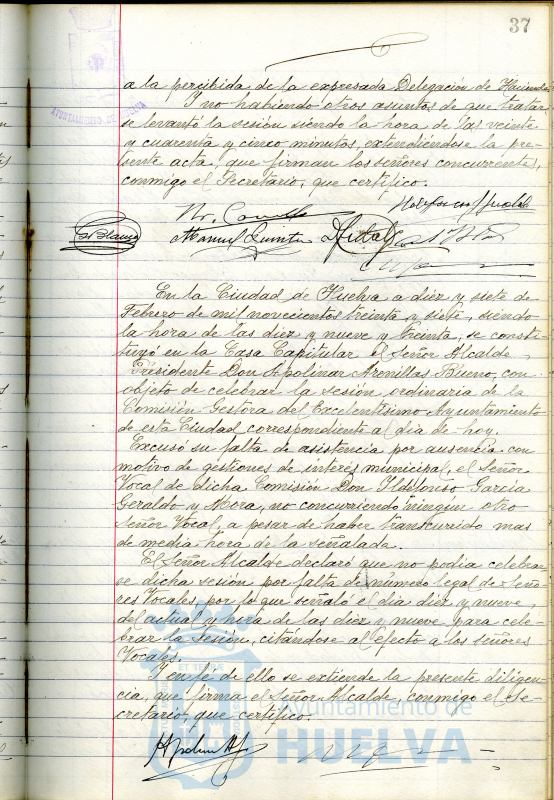 37
a la percibida de la expresada Delegación de Hacienda
Y no habiendo otros asuntos de que tratar
se levantó la sesión siendo la hora de las veinte
y cuarenta y cinco minutos, extendiéndose la pre-
sente acta, que firman los señores concurrentes,
conmigo el Secretario, que certifico.
Manuel Quintín
En la Ciudad de Huelva a diez y siete de
Febrero de mil novecientos treinta y siete, siendo
la hora de las diez y nueve y treinta, se consti-
tuyó en la Casa Capitular el Señor Alcalde
Presidente Don Apolinar Arenillas Bueno, con
objeto de celebrar la sesión ordinaria de la
Comisión Gestora del Excelentísimo Ayuntamiento
de esta Ciudad correspondiente al día de hoy.
Excusó su falta de asistencia por ausencia con
motivo de gestiones de interés municipal, el Señor
Vocal de dicha Comisión Don Ildefonso García
Geraldo y Mora, no concurriendo ningun otro
Señor Vocal, a pesar de haber transcurrido mas
de media hora de la señalada.
El Señor Alcalde declaró que no podia celebrar-
se dicha sesión por falta de número legal de Seño-
res Vocales, por lo que señaló el día diez y nueve
del actual y hora de las diez y nueve para cele-
brar la sesión, citándose al efecto a los señores
Vocales.
Y en fé de ello se extiende la presente diligen-
cia, que firma el Señor Alcalde, conmigo el Se-
cretario, que certifico.
Ayuntamiento de
HUELVA